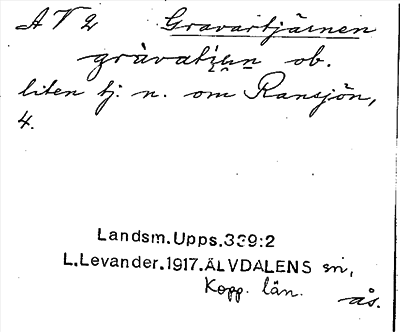 A V 2 Gravartjärnen
gràvatiu̯n̥ ob.
liten tj. n. om Ransjön,
4.
Landsm.Upps.339:2
L.Levander.1917.ÄLVDALENS sn,
Kopp. län.
ås.